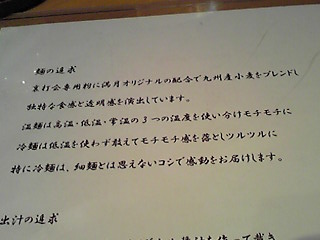 麺の追求
京打会専用粉に満月オリジナルの配合で九州産小麦をブレンドし
独特な食感と透明感を演出しています。
温麺は高温・低温・常温の3つの温度を使い分けモチモチに
冷麺は低温を使わず敢えてモチモチ感を落としツルツルに
特に冷麺は、細麺とは思えないコシで感動をお届けします。
出汁の追求